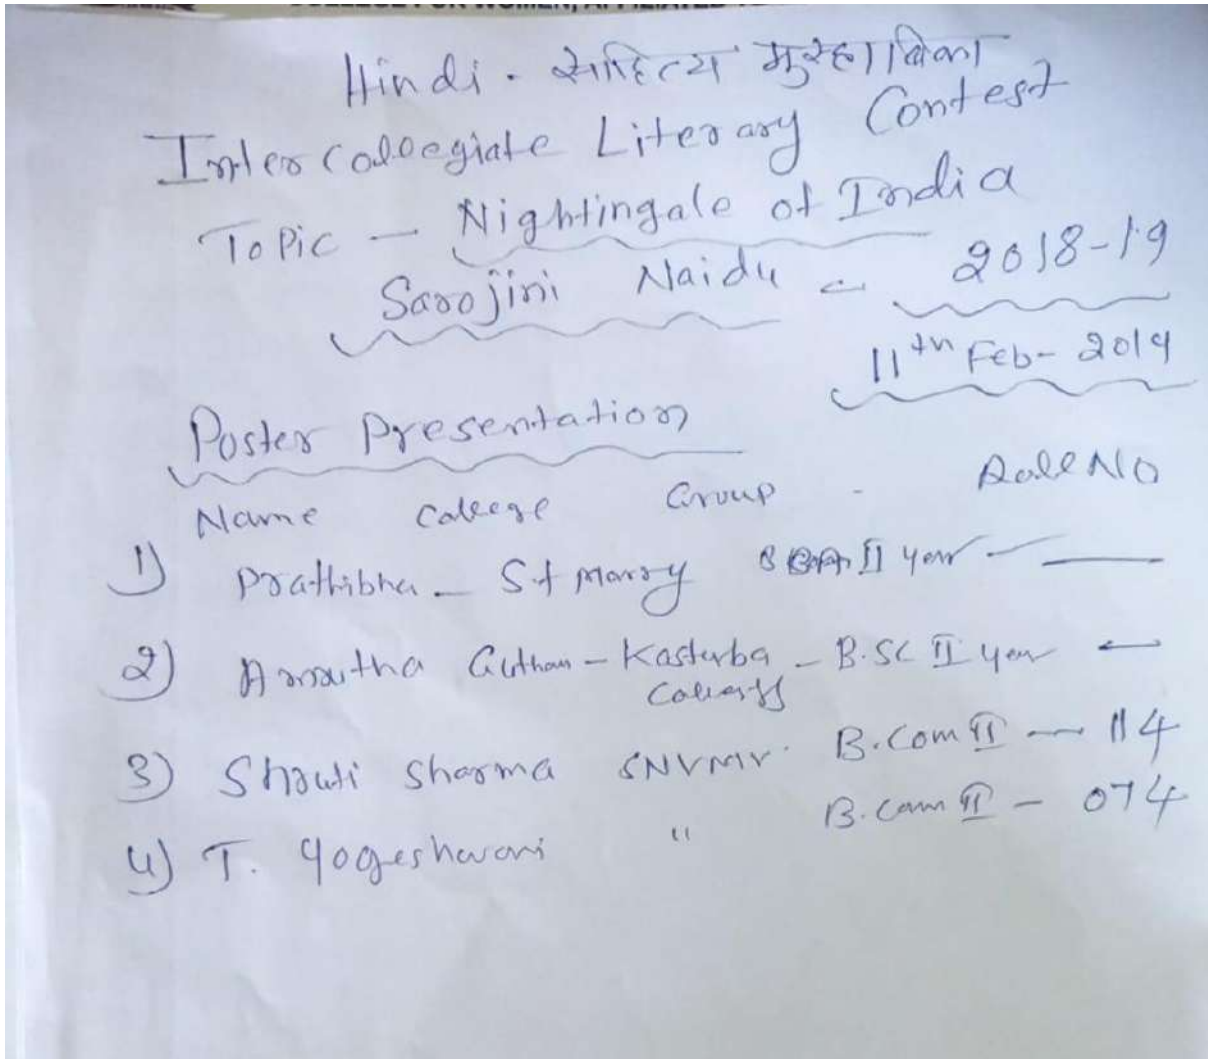 Hindi - साहित्य
Inter Collegiate Literary Contest
Topic - Nightingale of India
Sarojini Naidu - 2018-19
11th Feb - 2019
Poster Presentation
Name College Group - Roll No
1) Prathibha - St Marry II year -
2) Amrutha - Kasturba - B.SC II year -
3) Shruti Sharma SNVMV. B.Com II - 114
4) T. Yogeshwari " B.Com II - 074